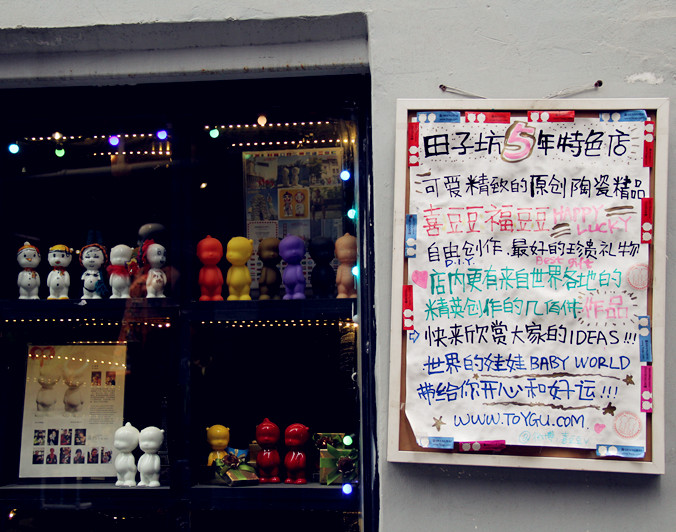 田子坊5年特色店
可爱精致的原创陶瓷精品
喜豆豆福豆豆 HAPPY LUCKY
自由创作.最好的珍贵礼物
Best gift
店内更有来自世界各地的
精英创作的几百件作品
快来欣赏大家的IDEAS!!!
世界的娃娃BABY WORLD
带给你开心和好运!!!
WWW.TOYGU.COM